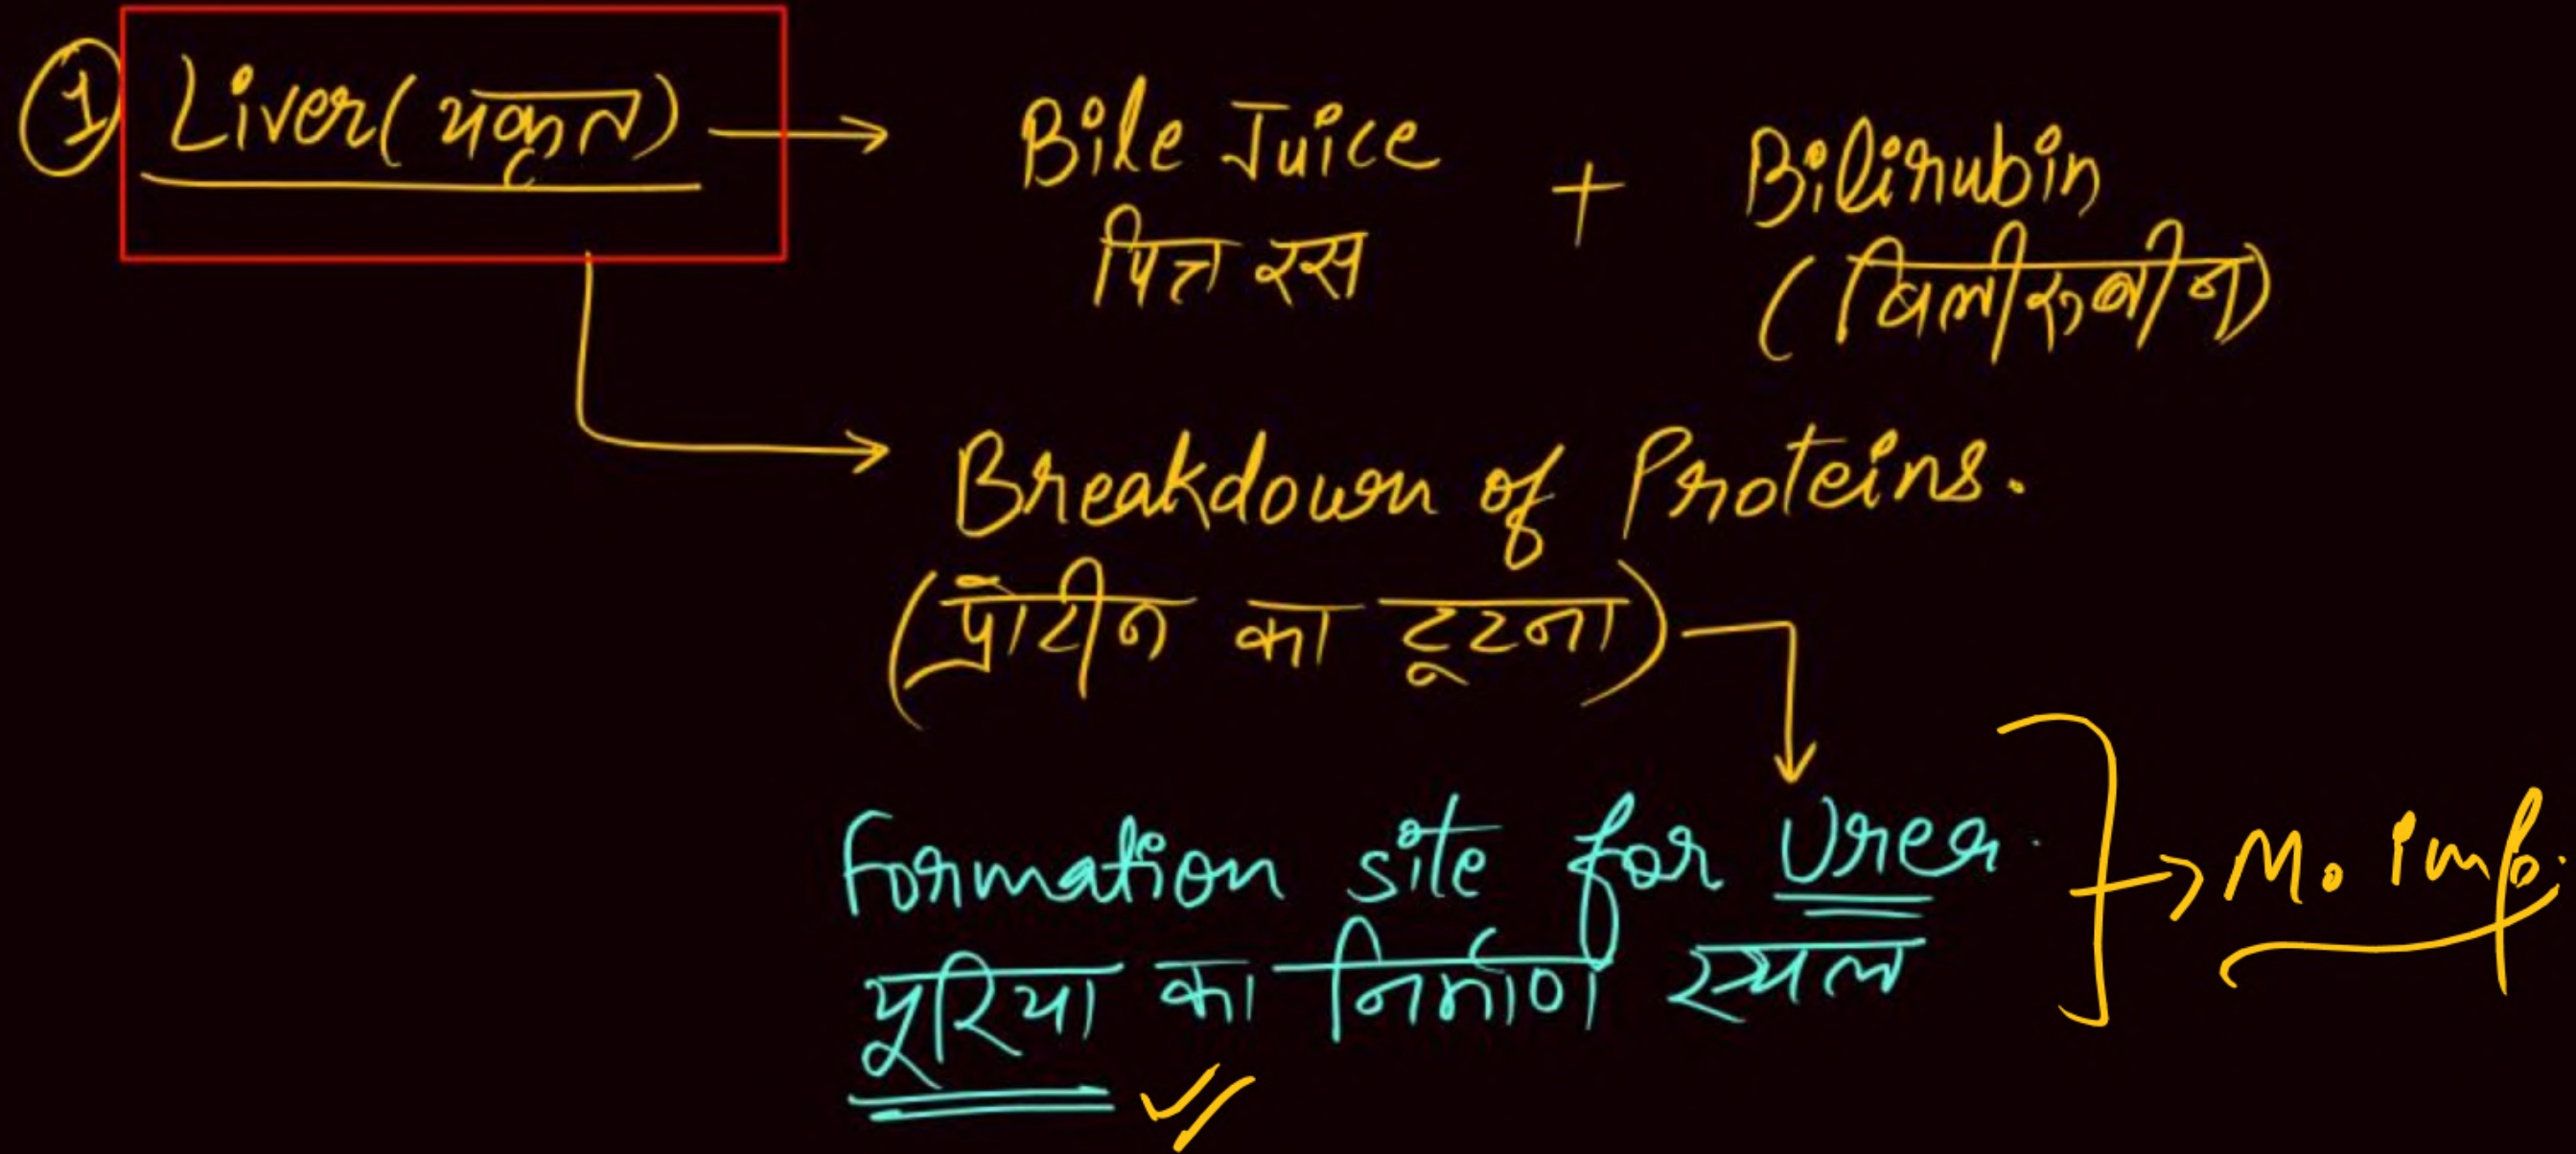 1 Liver (यकृत) → Bile Juice + Bilirubin
पित्त रस (बिलीरुबीन)
Breakdown of Proteins.
(प्रोटीन का टूटना)
Formation site for Urea.
यूरिया का निर्माण स्थल
M. imp.